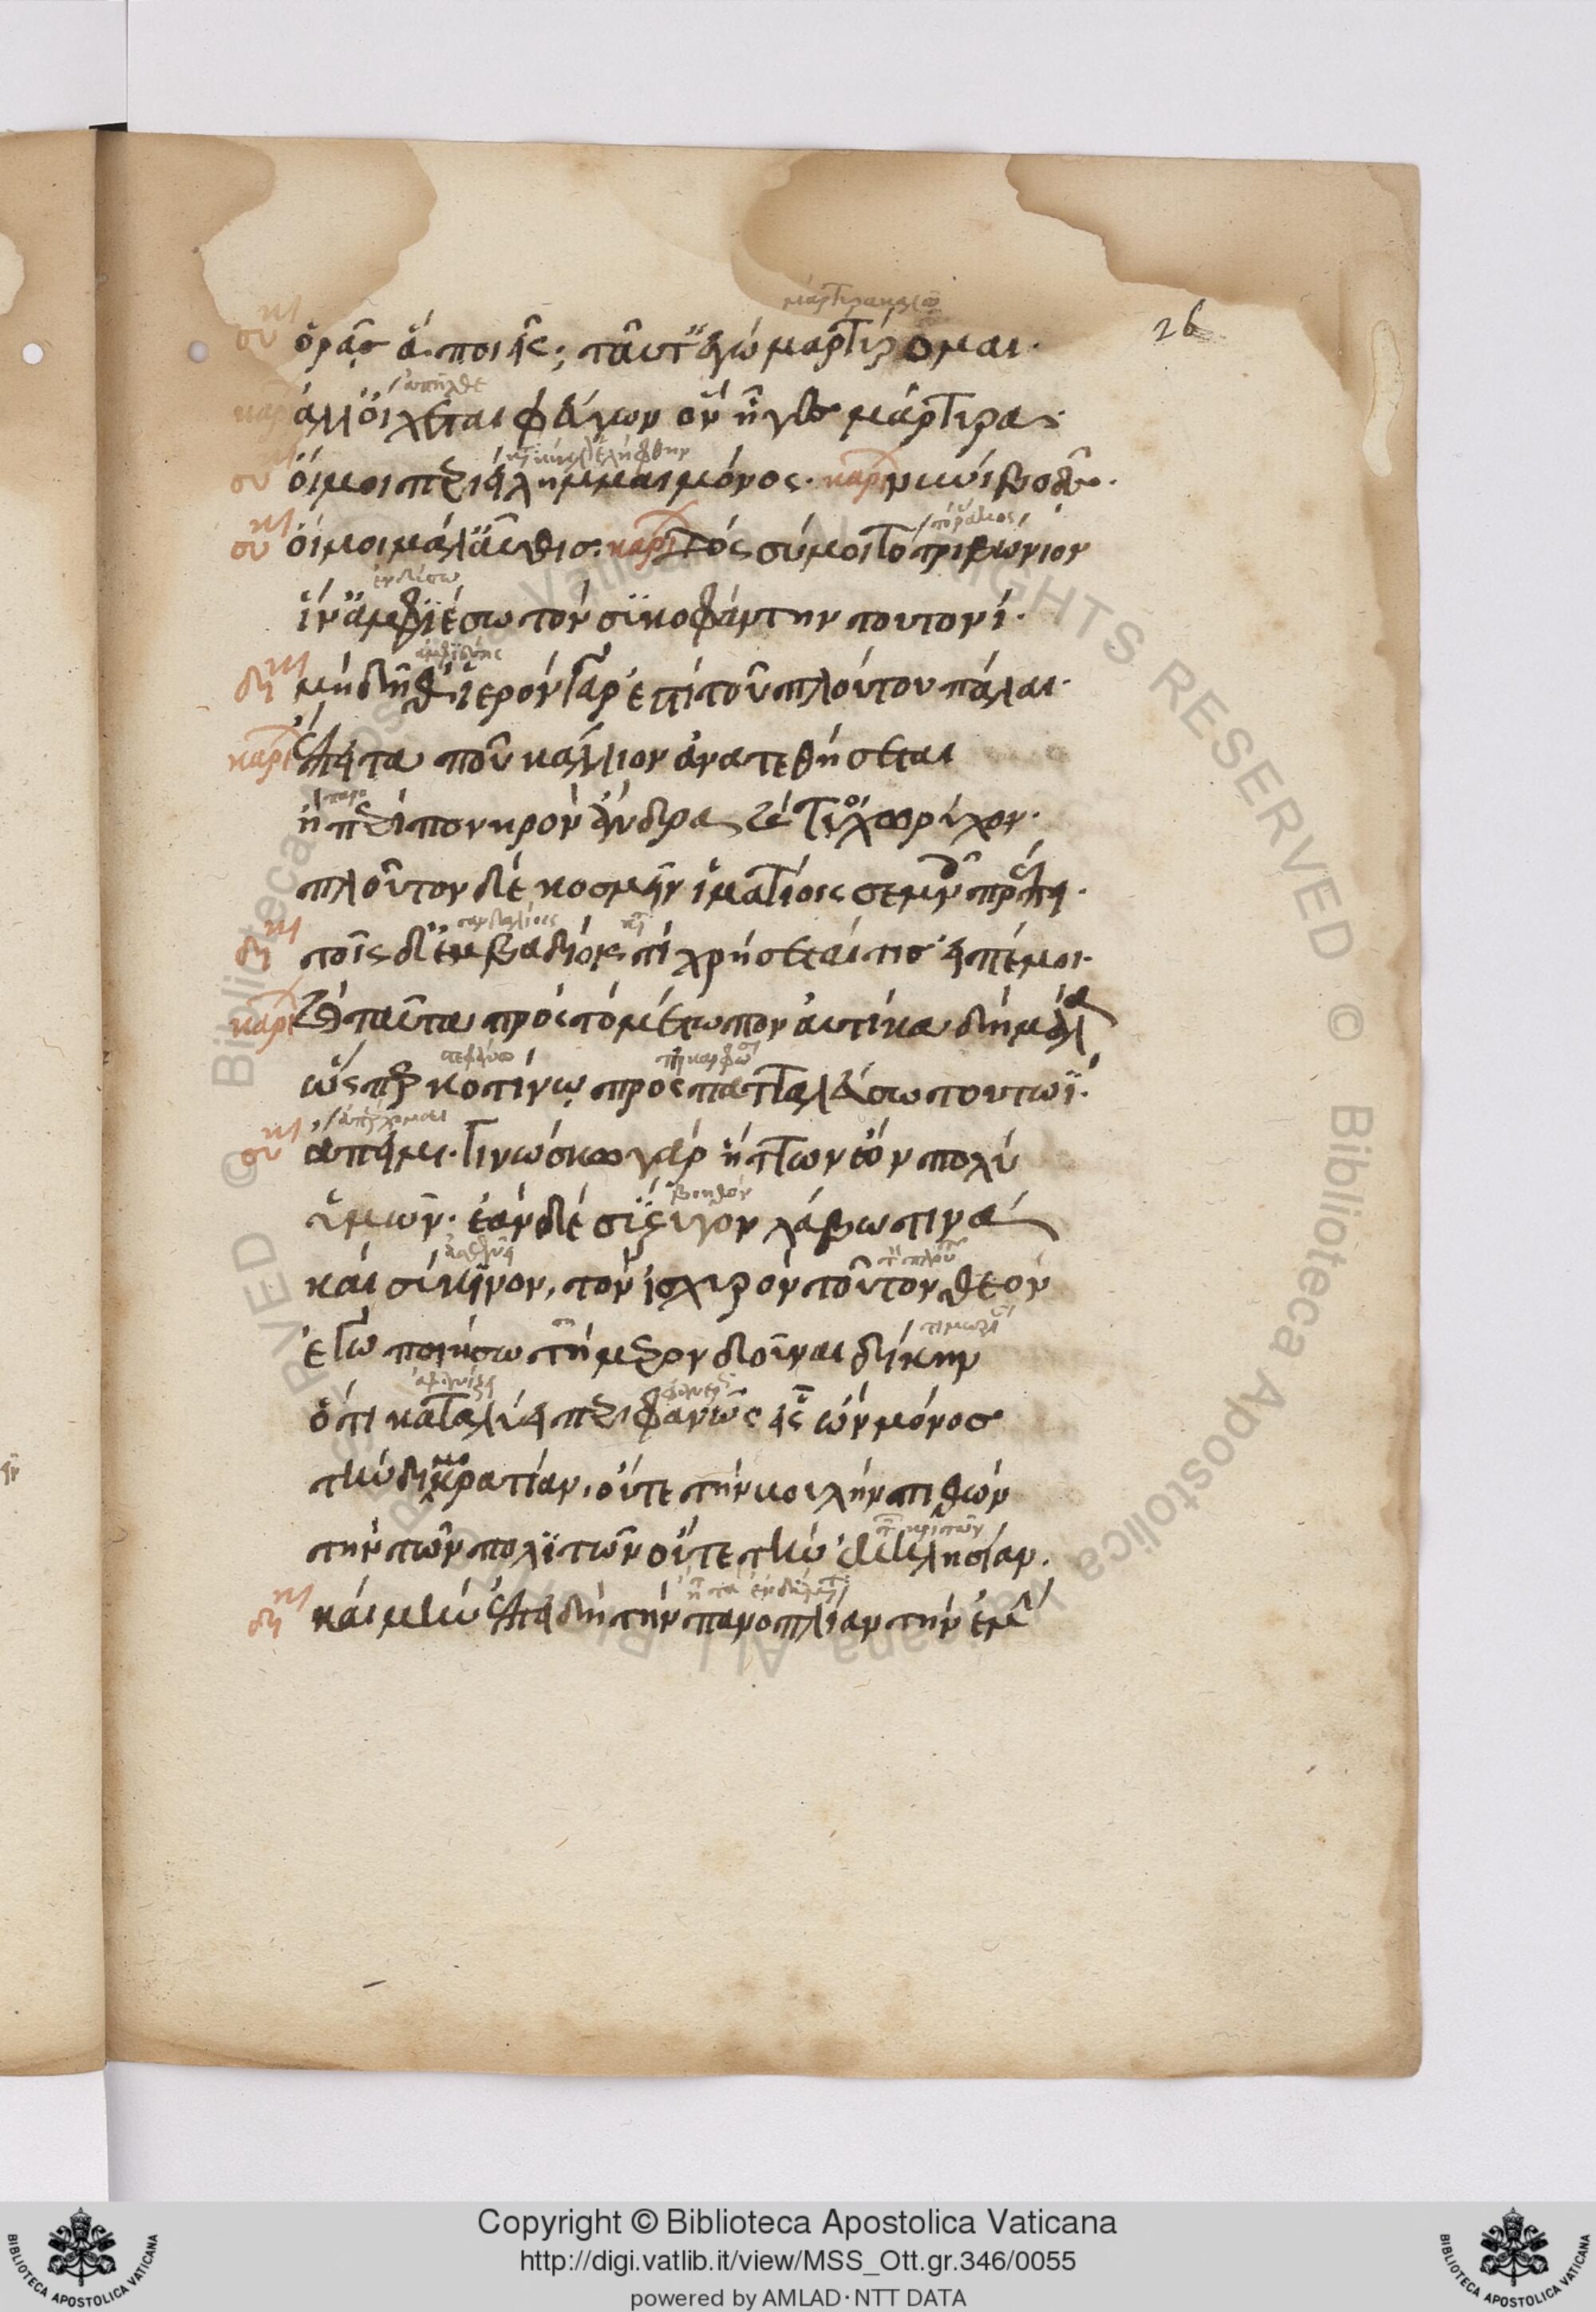 26
μάρτυρα καλῶ
συκ ὁρᾶς ἃ ποιεῖς; ταῦτ' ἐγὼ μαρτύρομαι·
ἀπῆλθε
καρι ἀλλ' οἴχεται φεύγων ὃν ἦγες μάρτυρα·
ἐλήφθην
συκ οἴμοι περιείλημμαι μόνος· καρι νυνὶ βοᾷς·
συκ οἴμοι μάλ' αὖθις· καρι δός σύ μοι τὸ τριβώνιον
ἐνδύσω
ἵν' ἀμφιέσω τὸν συκοφάντην τουτονί·
δικ μὴ δῆθ' ἱερὸν γάρ ἐστι τοῦ πλούτου πάλαι·
καρι ἔπειτα ποῦ κάλλιον ἀνατεθήσεται
ἢ περὶ πονηρὸν ἄνδρα καὶ τοιχωρύχον·
πλοῦτον δὲ κοσμεῖν ἱματίοις σεμνοῖς πρέπει·
σανδαλίοις
δικ τοῖς δ' ἐμβαδίοις τί χρήσεταί τις εἰπέ μοι·
καρι καὶ ταῦτα πρὸς τὸ μέτωπον αὐτίκα δὴ μάλα
ὥσπερ κοτίνῳ προσπατταλεύσω τουτωί·
ἀπέρχομαι
συκ ἄπειμι· γινώσκω γὰρ ἥττων ὢν πολὺ
βοηθόν
ὑμῶν· ἐὰν δὲ σύζυγον λάβω τινὰ
καὶ σύκινον, τὸν ἰσχυρὸν τοῦτον θεὸν
ἐγὼ ποιήσω τήμερον δοῦναι δίκην
ὅτι καταλύει περιφανῶς εἷς ὢν μόνος
τὴν δημοκρατίαν, οὔτε τὴν βουλὴν πιθὼν
τὴν τῶν πολιτῶν οὔτε τὴν ἐκκλησίαν·
δικ καὶ μὴν ἐπειδὴ τὴν πανοπλίαν τὴν ἐμὴν
Copyright © Biblioteca Apostolica Vaticana
http://digi.vatlib.it/view/MSS_Ott.gr.346/0055
powered by AMLAD·NTT DATA